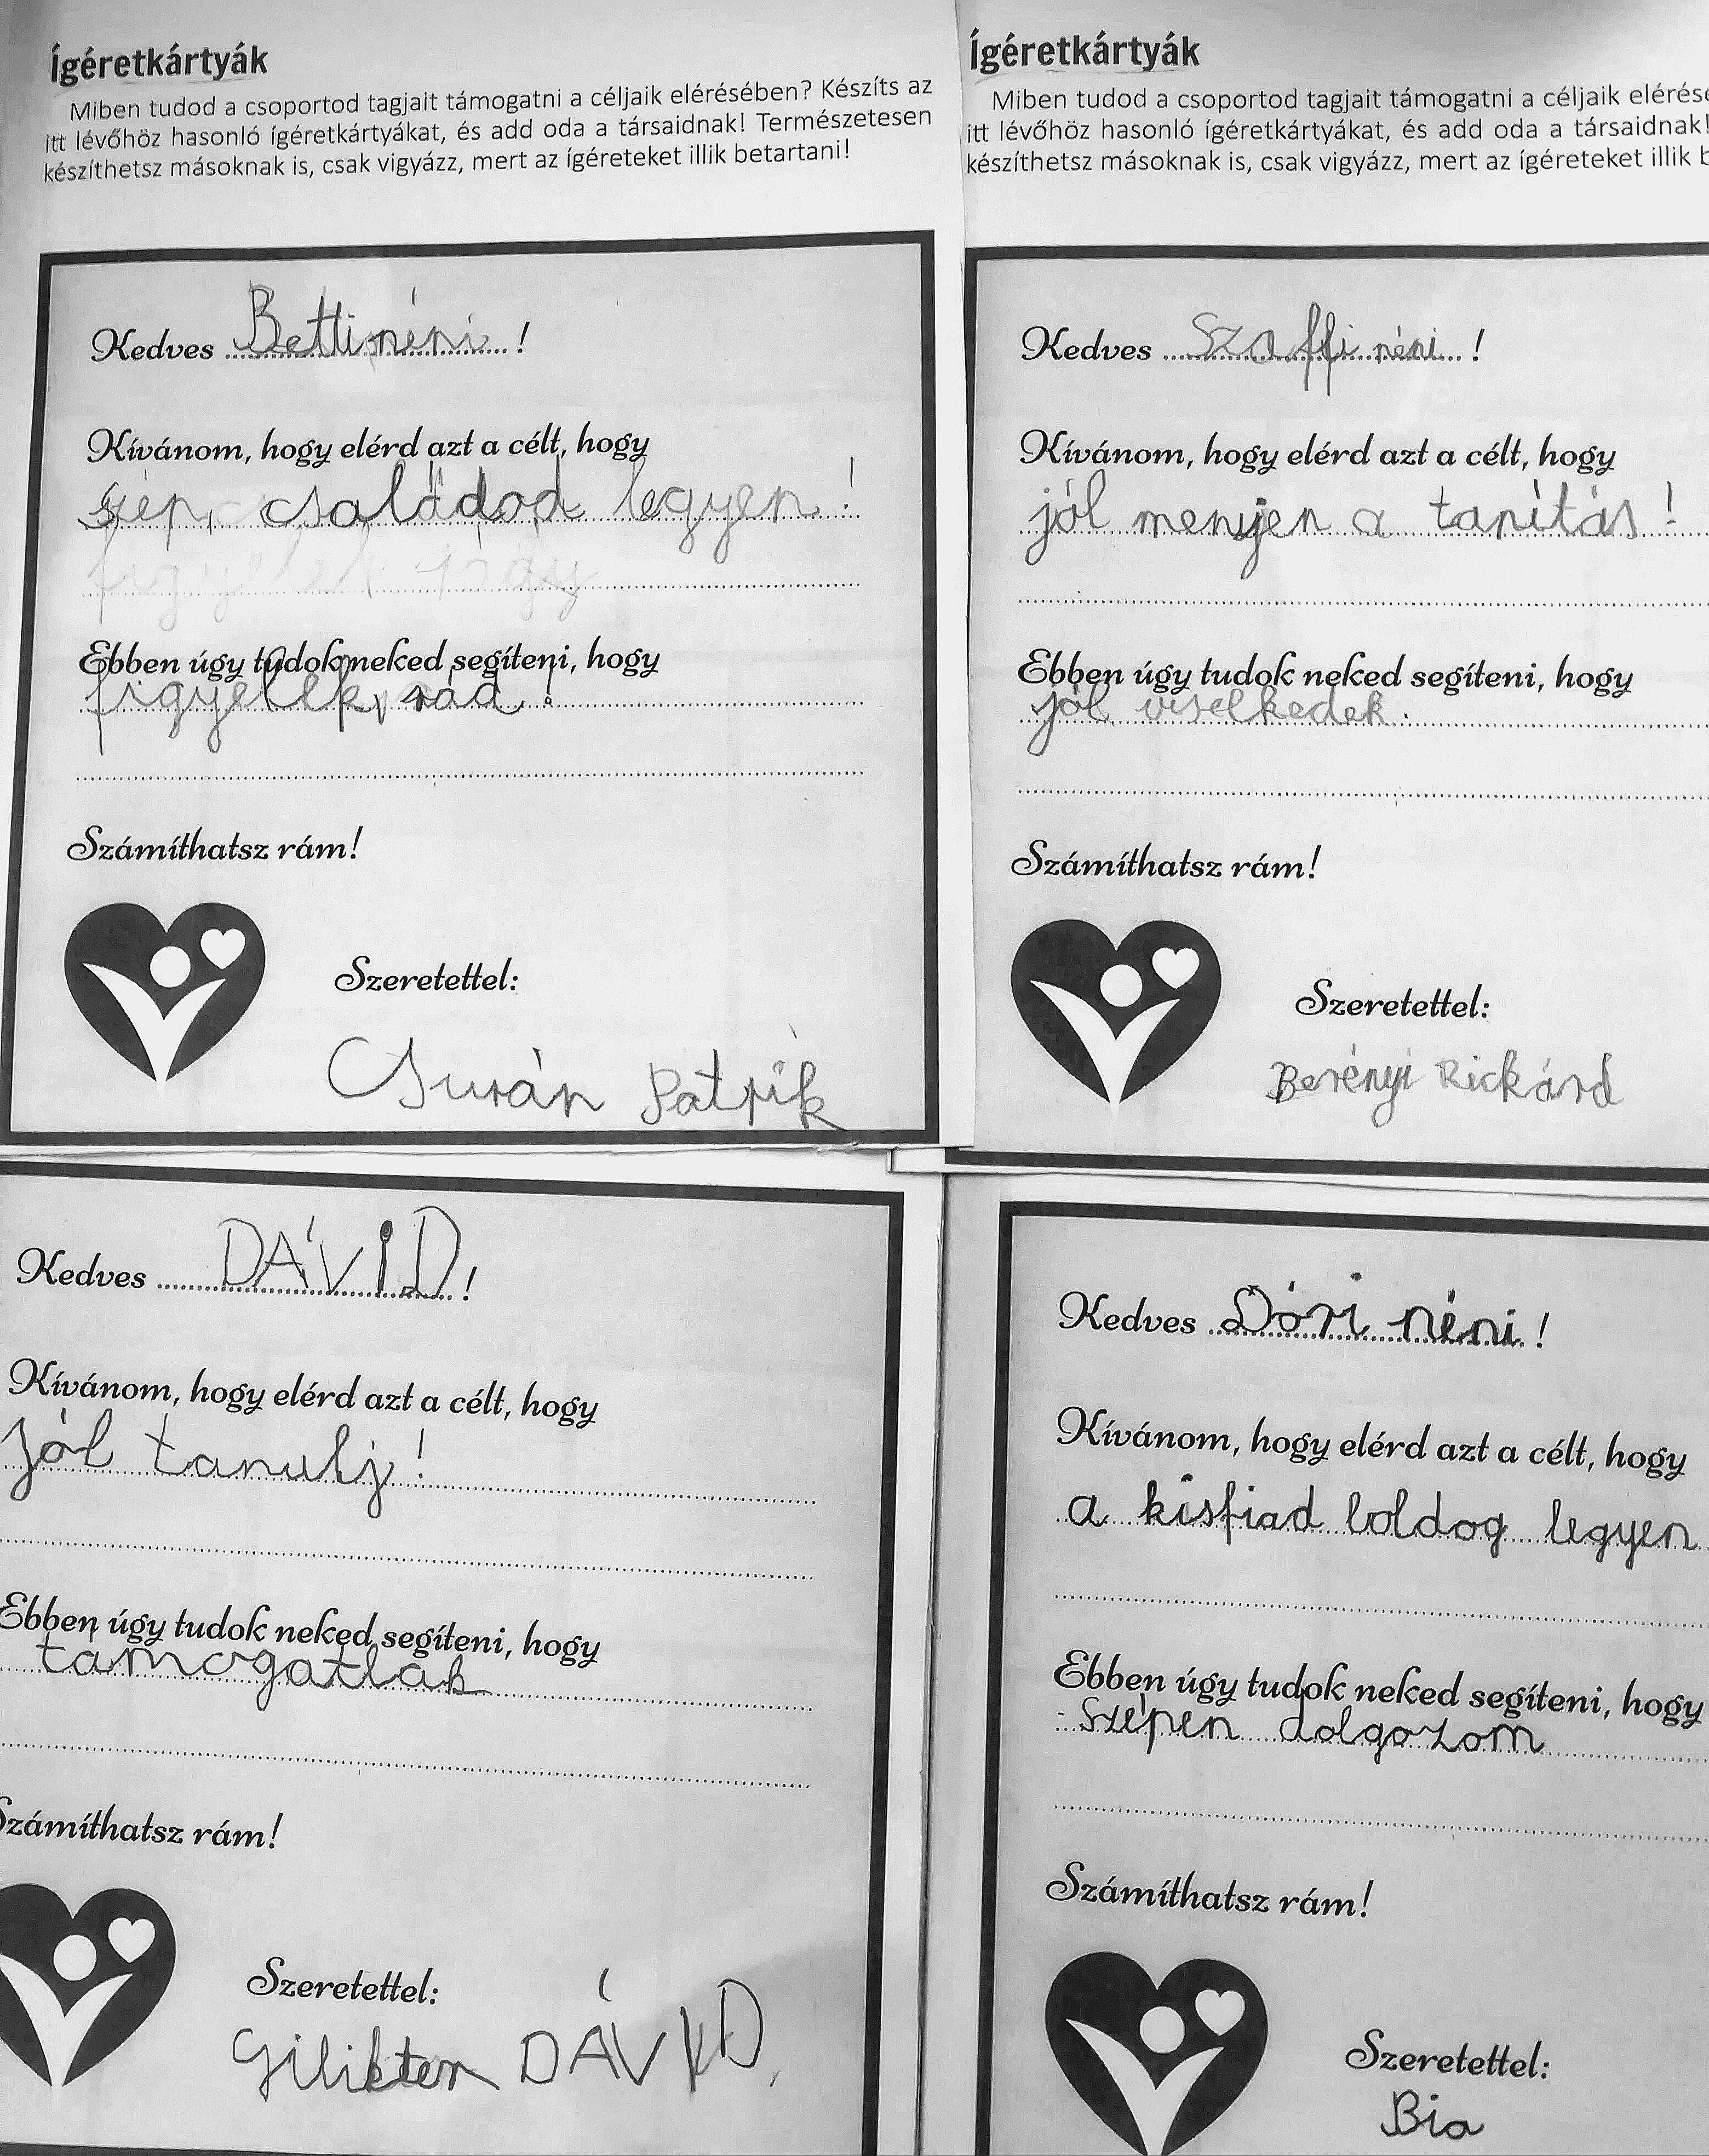 Ígéretkártyák
Miben tudod a csoportod tagjait támogatni a céljaik elérésében? Készíts az
itt lévőhöz hasonló ígéretkártyákat, és add oda a társaidnak! Természetesen
készíthetsz másoknak is, csak vigyázz, mert az ígéreteket illik betartani!
Kedves Betti néni!
Kívánom, hogy elérd azt a célt, hogy
szép családod legyen!
Ebben úgy tudok neked segíteni, hogy
figyelek rád!
Számíthatsz rám!
Szeretettel:
Csurán Patrik
Ígéretkártyák
Miben tudod a csoportod tagjait támogatni a céljaik elérés
itt lévőhöz hasonló ígéretkártyákat, és add oda a társaidnak!
készíthetsz másoknak is, csak vigyázz, mert az ígéreteket illik b
Kedves Szaffi néni!
Kívánom, hogy elérd azt a célt, hogy
jól menjen a tanítás!
Ebben úgy tudok neked segíteni, hogy
jól viselkedek.
Számíthatsz rám!
Szeretettel:
Berényi Rickárd
Kedves DÁVID!
Kívánom, hogy elérd azt a célt, hogy
Jól tanulj!
Ebben úgy tudok neked segíteni, hogy
támogatlak
Számíthatsz rám!
Szeretettel:
DÁVID
Kedves Dóri néni!
Kívánom, hogy elérd azt a célt, hogy
a kisfiad boldog legyen
Ebben úgy tudok neked segíteni, hogy
szépen dolgozom
Számíthatsz rám!
Szeretettel:
Bia